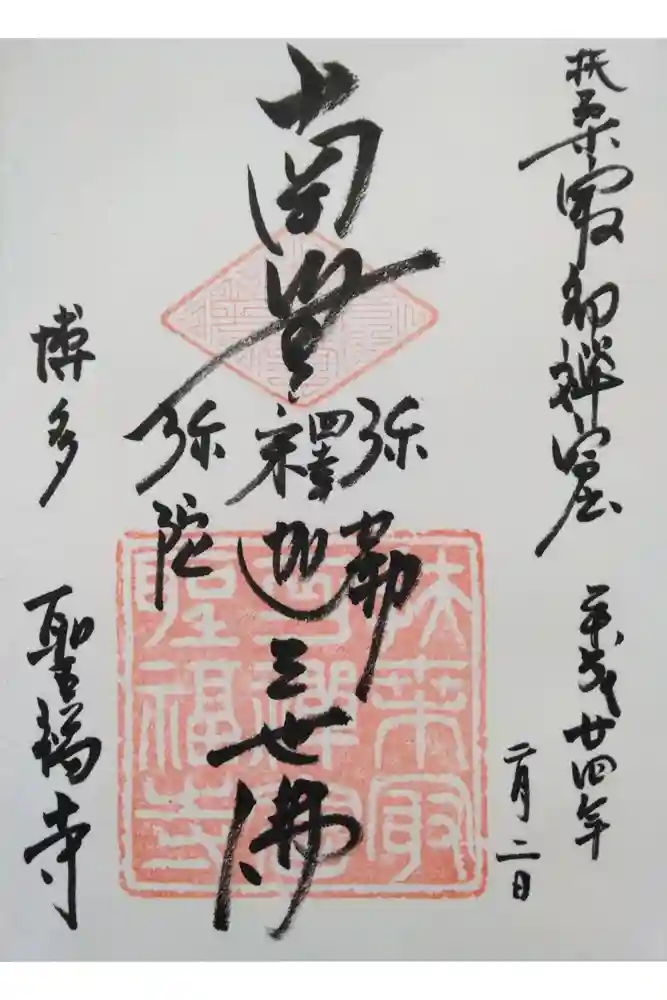 扶桑最初禅窟
平成廿四年
二月二日
南無
弥勒
釋迦三世佛
弥陀
博多
聖福寺
扶桑最
初禅窟
聖福寺